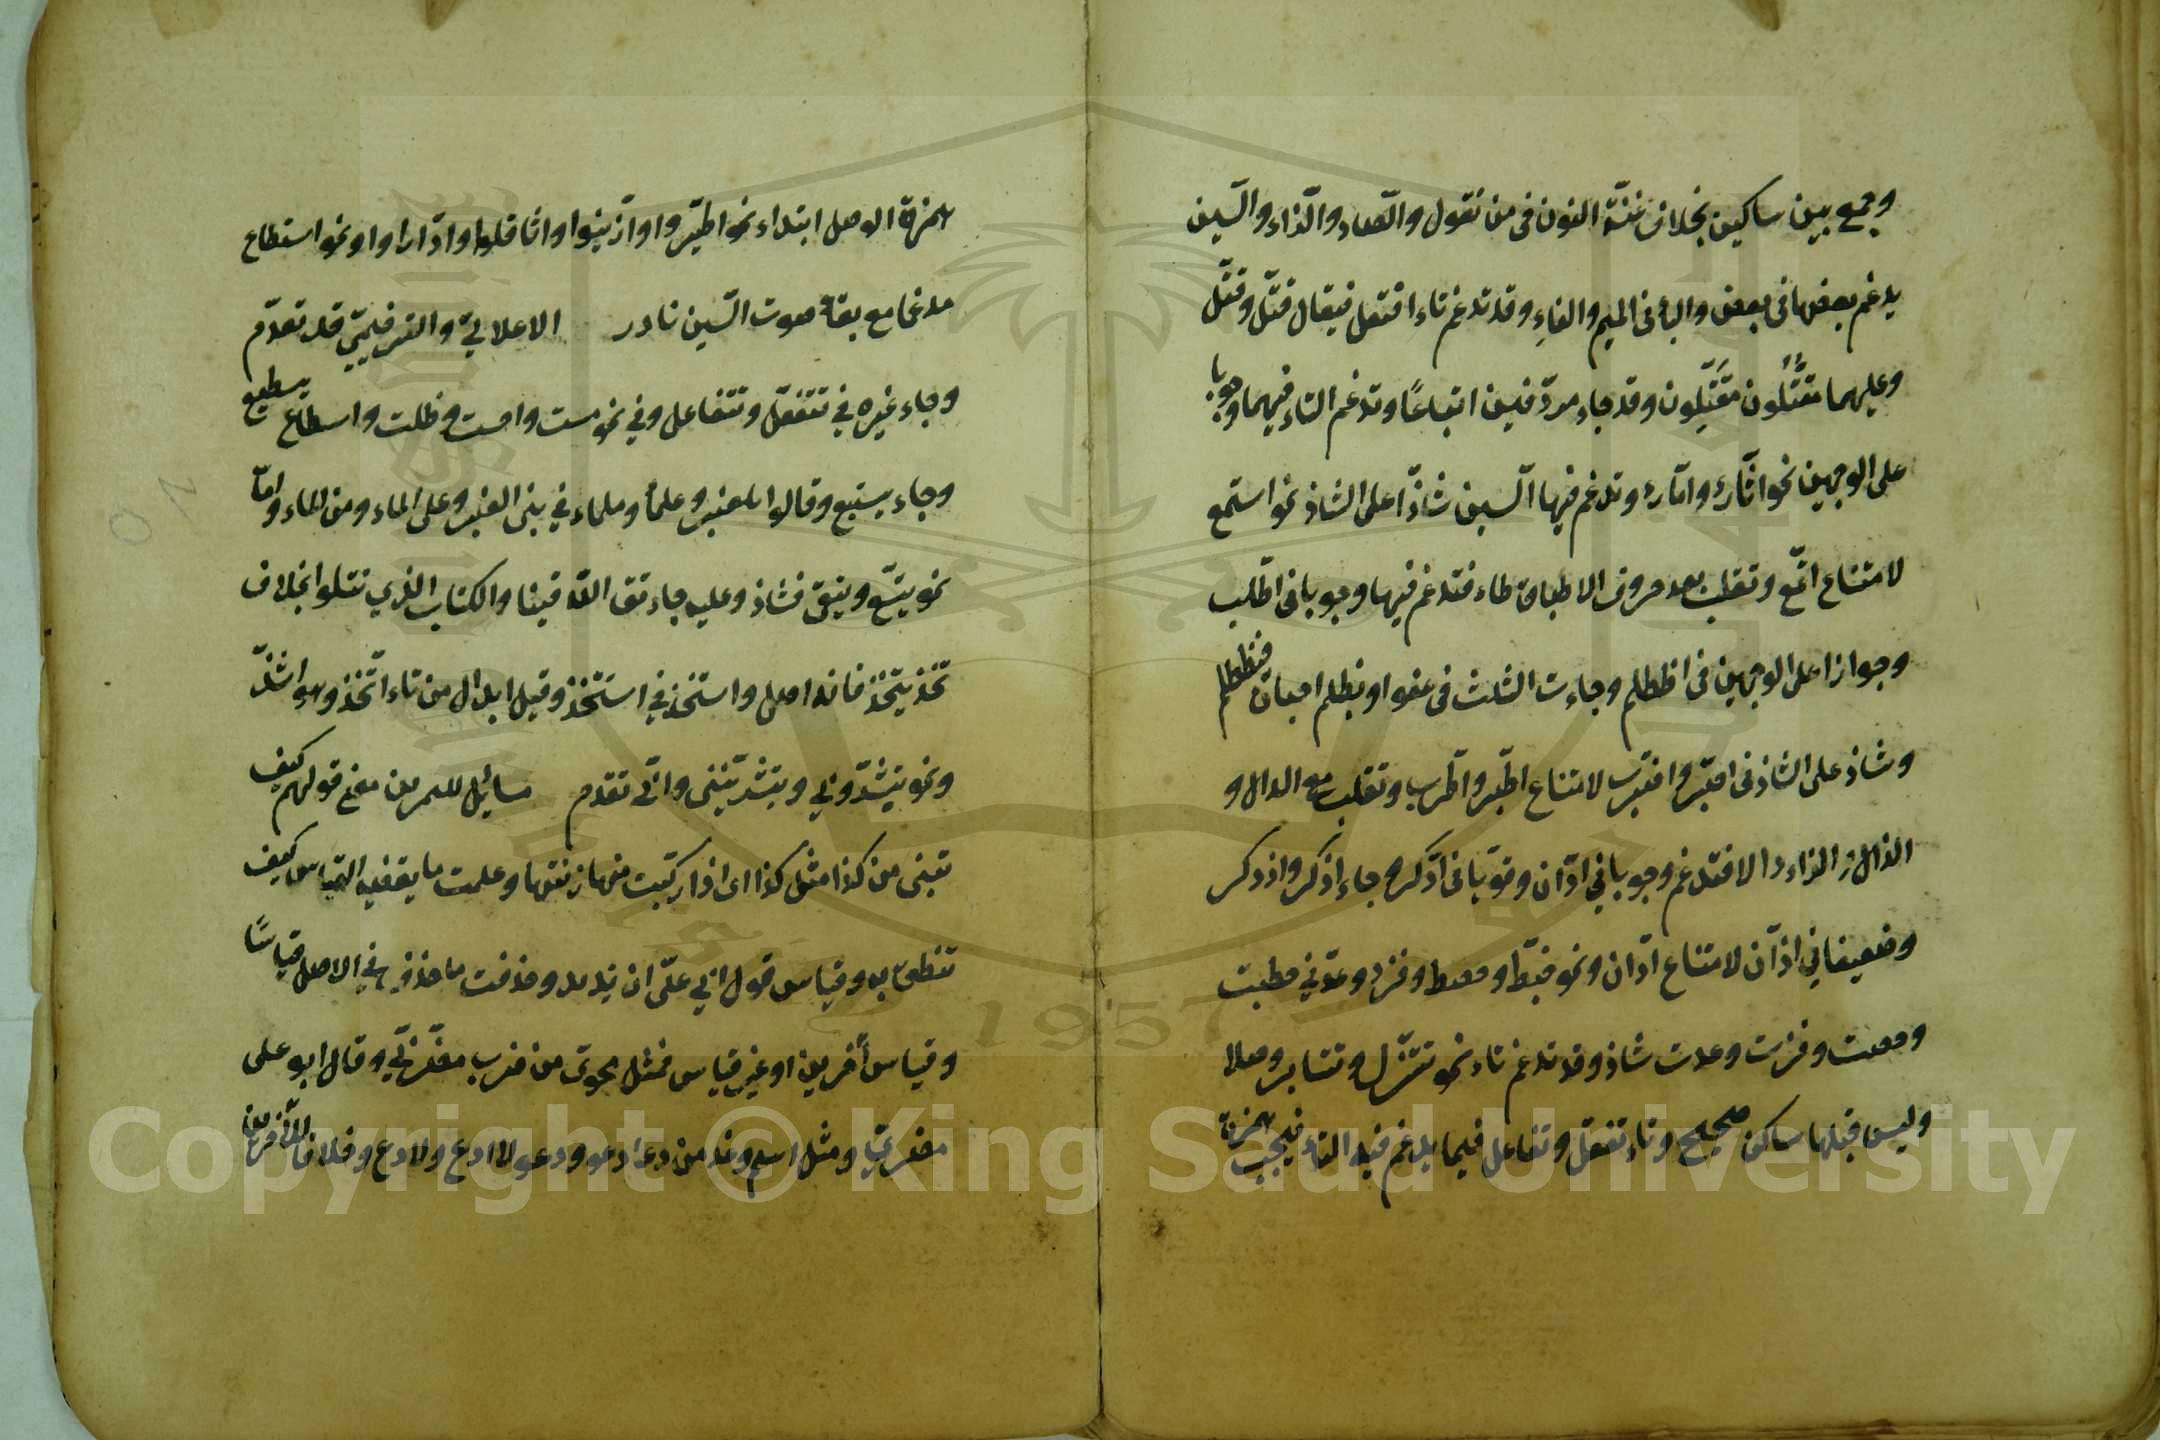 وجمع بين ساكنين بخلاف غنّة النون في من نقول والصّاد والزّاء والسّين
يدغم بعضها في بعض والباء في الميم والفاءِ وقد تدغم تاء افتعل فيقال قتّل وقتّل
وعليهما مقَتِّلون مقِتِّلون وقد جاء مردّفين اتباعًا وتدغم الثاء فيهما وجوبا
على الوجهين نحو اثّار واتّار وتدغم فيها السّين شاذّا على الشاذ نحو استمع
لامتناع اتّمع وتقلب بعد حروف الاطباق طاء فتدغم فيها وجوبا في اطّلب
وجوازا على الوجهين في اظطلم وجاءت الثلث في عفوا ويظلم احيانا فيظطلم
وشاذ على الشاذ في اصّبر واضّرب لامتناع اطّبر واطّرب وتقلب مع الدال و
الذال والزاء دالا فتدغم وجوبا في ادّان وقوّيا في ادّكر وجاء اذّكر واذدكر
وضعيفا في ازّان لامتناع ادّان ونحو خبطّ وحصط وفزد وعدّ في خبطت
وحصت وفزت وعدت شاذ وقد تدغم تاء نحو تتنزّل وتتنابز وصلا
وليس قبلها ساكن صحيح وتاء تفعّل وتفاعل فيما يدغم فيه التاء فيجب همزة
همزة الوصل ابتداء نحو اطّيّروا وازّيّنوا واثّاقلوا وادّارأوا ونحو اسطاع
مدغما مع بقاء صوت السّين نادر الاعلاليّ والترخيميّ قد تقدّم
وجاء غيره في تتفعّل وتتفاعل وفي نحو مست واحست وظلت واسطاع يسطيع
وجاء يستيع وقالوا بلعنبر وعلماء وملماء في بني العنبر وعلى الماء ومن الماء وامّا
نحو يتسع ويتقي فشاذ وعليه جاء تق الله فينا والكتاب الذي تتلوا بخلاف
تخذ يتخذ فانه اصل واستخذ في استتخذ وقيل ابدال من تاء اتّخذ وهو اشذّ
ونحو تبشّروني وتبشّرينني وانّي تقدم مسائل للتمرين معنى قولهم كيف
تبنى من كذا مثل كذا اى اذا ركّبت منها زنتها وعلمت ما يقتضيه القياس كيف
تنطق به وقياس قول ابي عليّ ان تزيد وحذفت ما حذف في الاصل قياسًا
وقياس آخرين او غير قياس فمثل محويّ من ضرب مضربيّ وقال ابو على
مضريّ ومثل اسم وغد من دعا ادعو ودعو لا ادع ولا دع خلافا للآخرين